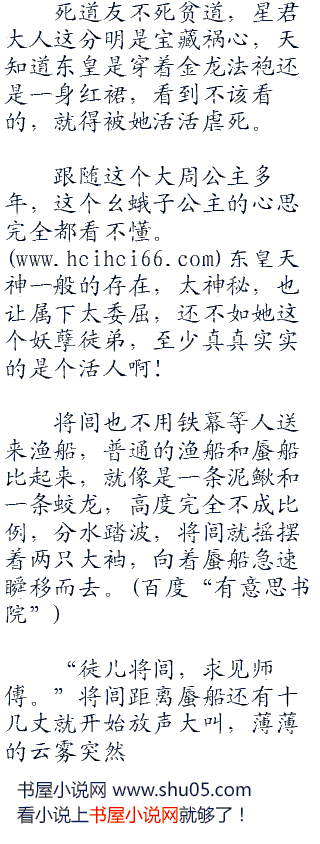 死道友不死贫道，星君
大人这分明是宝藏祸心，天
知道东皇是穿着金龙法袍还
是一身红裙，看到不该看
的，就得被她活活虐死。
跟随这个大周公主多
年，这个幺蛾子公主的心思
完全都看不懂。
(www.hcihci66.com)东皇天
神一般的存在，太神秘，也
让属下太委屈，还不如她这
个妖孽徒弟，至少真真实实
的是个活人啊！
将闾也不用铁幕等人送
来渔船，普通的渔船和蜃船
比起来，就像是一条泥鳅和
一条蛟龙，高度完全不成比
例，分水踏波，将闾就摇摆
着两只大袖，向着蜃船急速
瞬移而去。(百度“有意思书
院”)
“徒儿将闾，求见师
傅。”将闾距离蜃船还有十
几丈就开始放声大叫，薄薄
的云雾突然
书屋小说网 www.shu05.com
看小说上书屋小说网就够了！